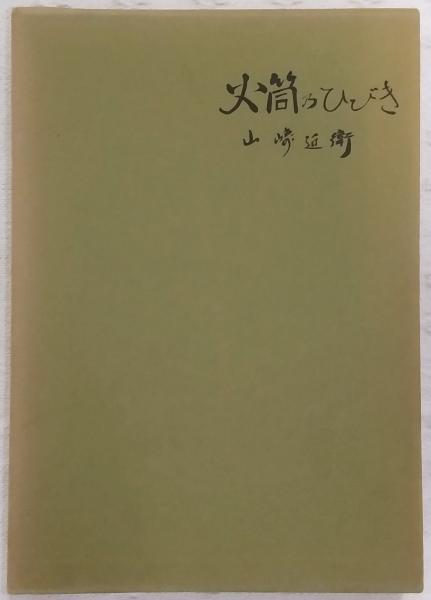 火筒乃ひびき
山崎近衛